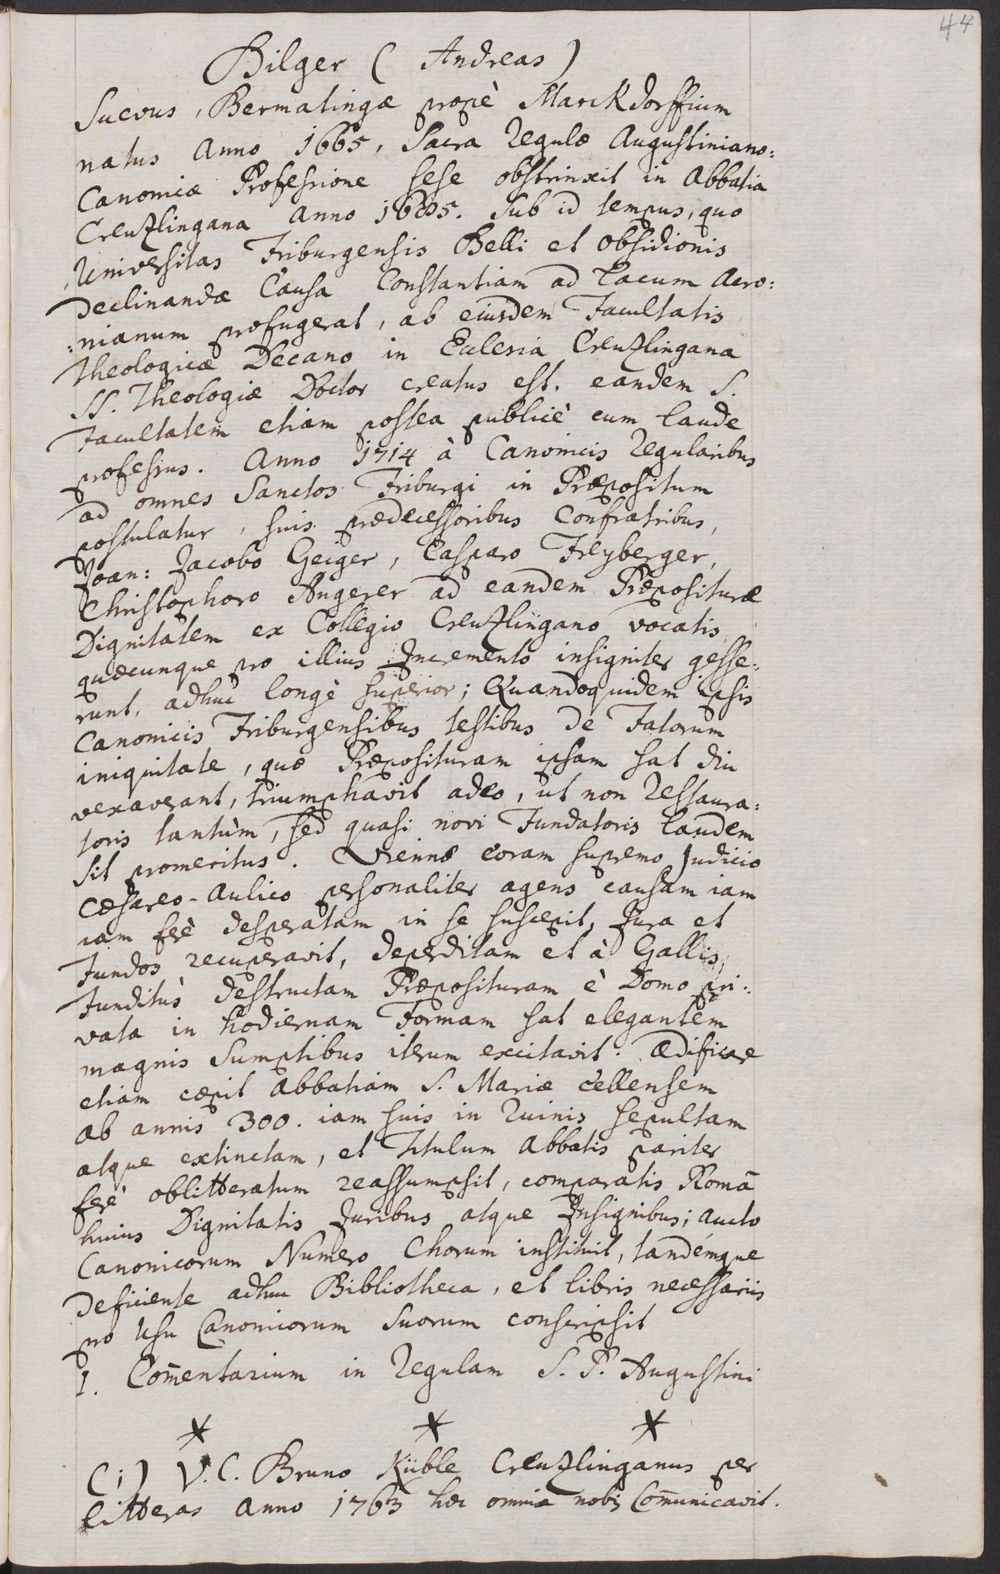 44
Bilger ( Andreas )
Suevus, Bermatingæ propè Marckdorffium
natus Anno 1665, Sacra Regulæ Augustiniano-
Canonicæ Professione sese obstrinxit in Abbatia
Creuzlingana Anno 1685. Sub id tempus, quo
Universitas Friburgensis Belli et obsidionis
Declinandæ Causa Constantiam ad Lacum Acro:
:nianum profugerat, ab eiusdem Facultatis
Theologicæ Decano in Ecclesia Creuzlingana
SS. Theologiæ Doctor creatus est. eandem S.
Facultatem etiam postea publicè cum laude
professus. Anno 1714 à Canonicis Regularibus
ad omnes Sanctos Friburgi in Præpositum
postulatur, suis prædecessoribus Confratribus,
Joan: Jacobo Geiger, Casparo Freyberger,
Christophoro Angerer ad eandem Præposituræ
Dignitatem ex Collegio Creuzlingano vocatis,
quæcunque pro illius Incremento insigniter gesse:
runt, adhuc longè superior; Quandoquidem ipsis
Canonicis Friburgensibus testibus de Fatorum
iniquitate, quæ Præposituram ipsam sat diu
vexaverant, triumphavit adeo, ut non Restaura:
toris tantùm, sed quasi novi Fundatoris laudem
sit promeritus. Viennæ coram supremo Judicio
Cæsareo-Aulico personaliter agens causam iam
iam ferè desperatam in se suscepit, Jura et
Fundos recuperavit, deperditam et à Gallis
Funditùs destructam Præposituram è Domo pri:
vata in hodiernam Formam sat elegantem
magnis Sumptibus iterum excitavit. Ædificare
etiam cœpit Abbatiam S. Mariæ Cellensem
ab annis 300. iam suis in Ruinis sepultam
atque extinctam, et Titulum Abbatis pariter
ferè oblitteratum reassumpsit, comparatis Româ
huius Dignitatis Juribus atque Insignibus; Aucto
Canonicorum Numero Chorum instituit, tandémque
deficiente adhuc Bibliotheca, et libris necessariis
pro Usu Canonicorum Suorum conscripsit
1. Com̄entarium in Regulam S. P. Augustini
* * *
(i) V. C. Bruno Küble Creuzlinganus per
litteras Anno 1763 hæc omnia nobis Com̄unicavit.